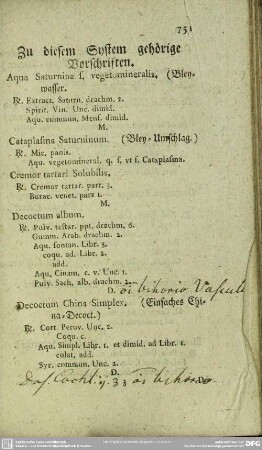 751
Zu diesem System gehörige
Vorschriften.
Aqua Saturnina s. vegetomineralis. (Bley-
wasser.
℞. Extract. Saturn. drachm. 2.
Spirit. Vin. Unc. dimid.
Aqu. commun. Mens. dimid.
M.
Cataplasma Saturninum. (Bley-Umschlag.)
℞. Mic. panis.
Aqu. vegetomineral. q. s. vt f. Cataplasma.
Cremor tartari Solubilis.
℞. Cremor tartar. part. 3.
Borac. venet. pars 1.
M.
Decoctum album.
℞. Pulv. testar. ppt. drachm. 6.
Gumm. Arab. drachm. 2.
Aqu. fontan. Libr. 3.
coqu. ad. Libr. 2.
add.
Aqu. Cinam. c. v. Unc. 1.
Pulv. Sach. alb. drachm. 2.
D. bihorio Vascul
Decoctum China Simplex. (Einfaches Chi-
na-Decoct.)
℞. Cort. Peruv. Unc. 2.
Coqu. c.
Aqu. Simpl. Libr. 1. et dimid. ad Libr. 1.
colat. add.
Syr. commun. Unc. 2.
D.